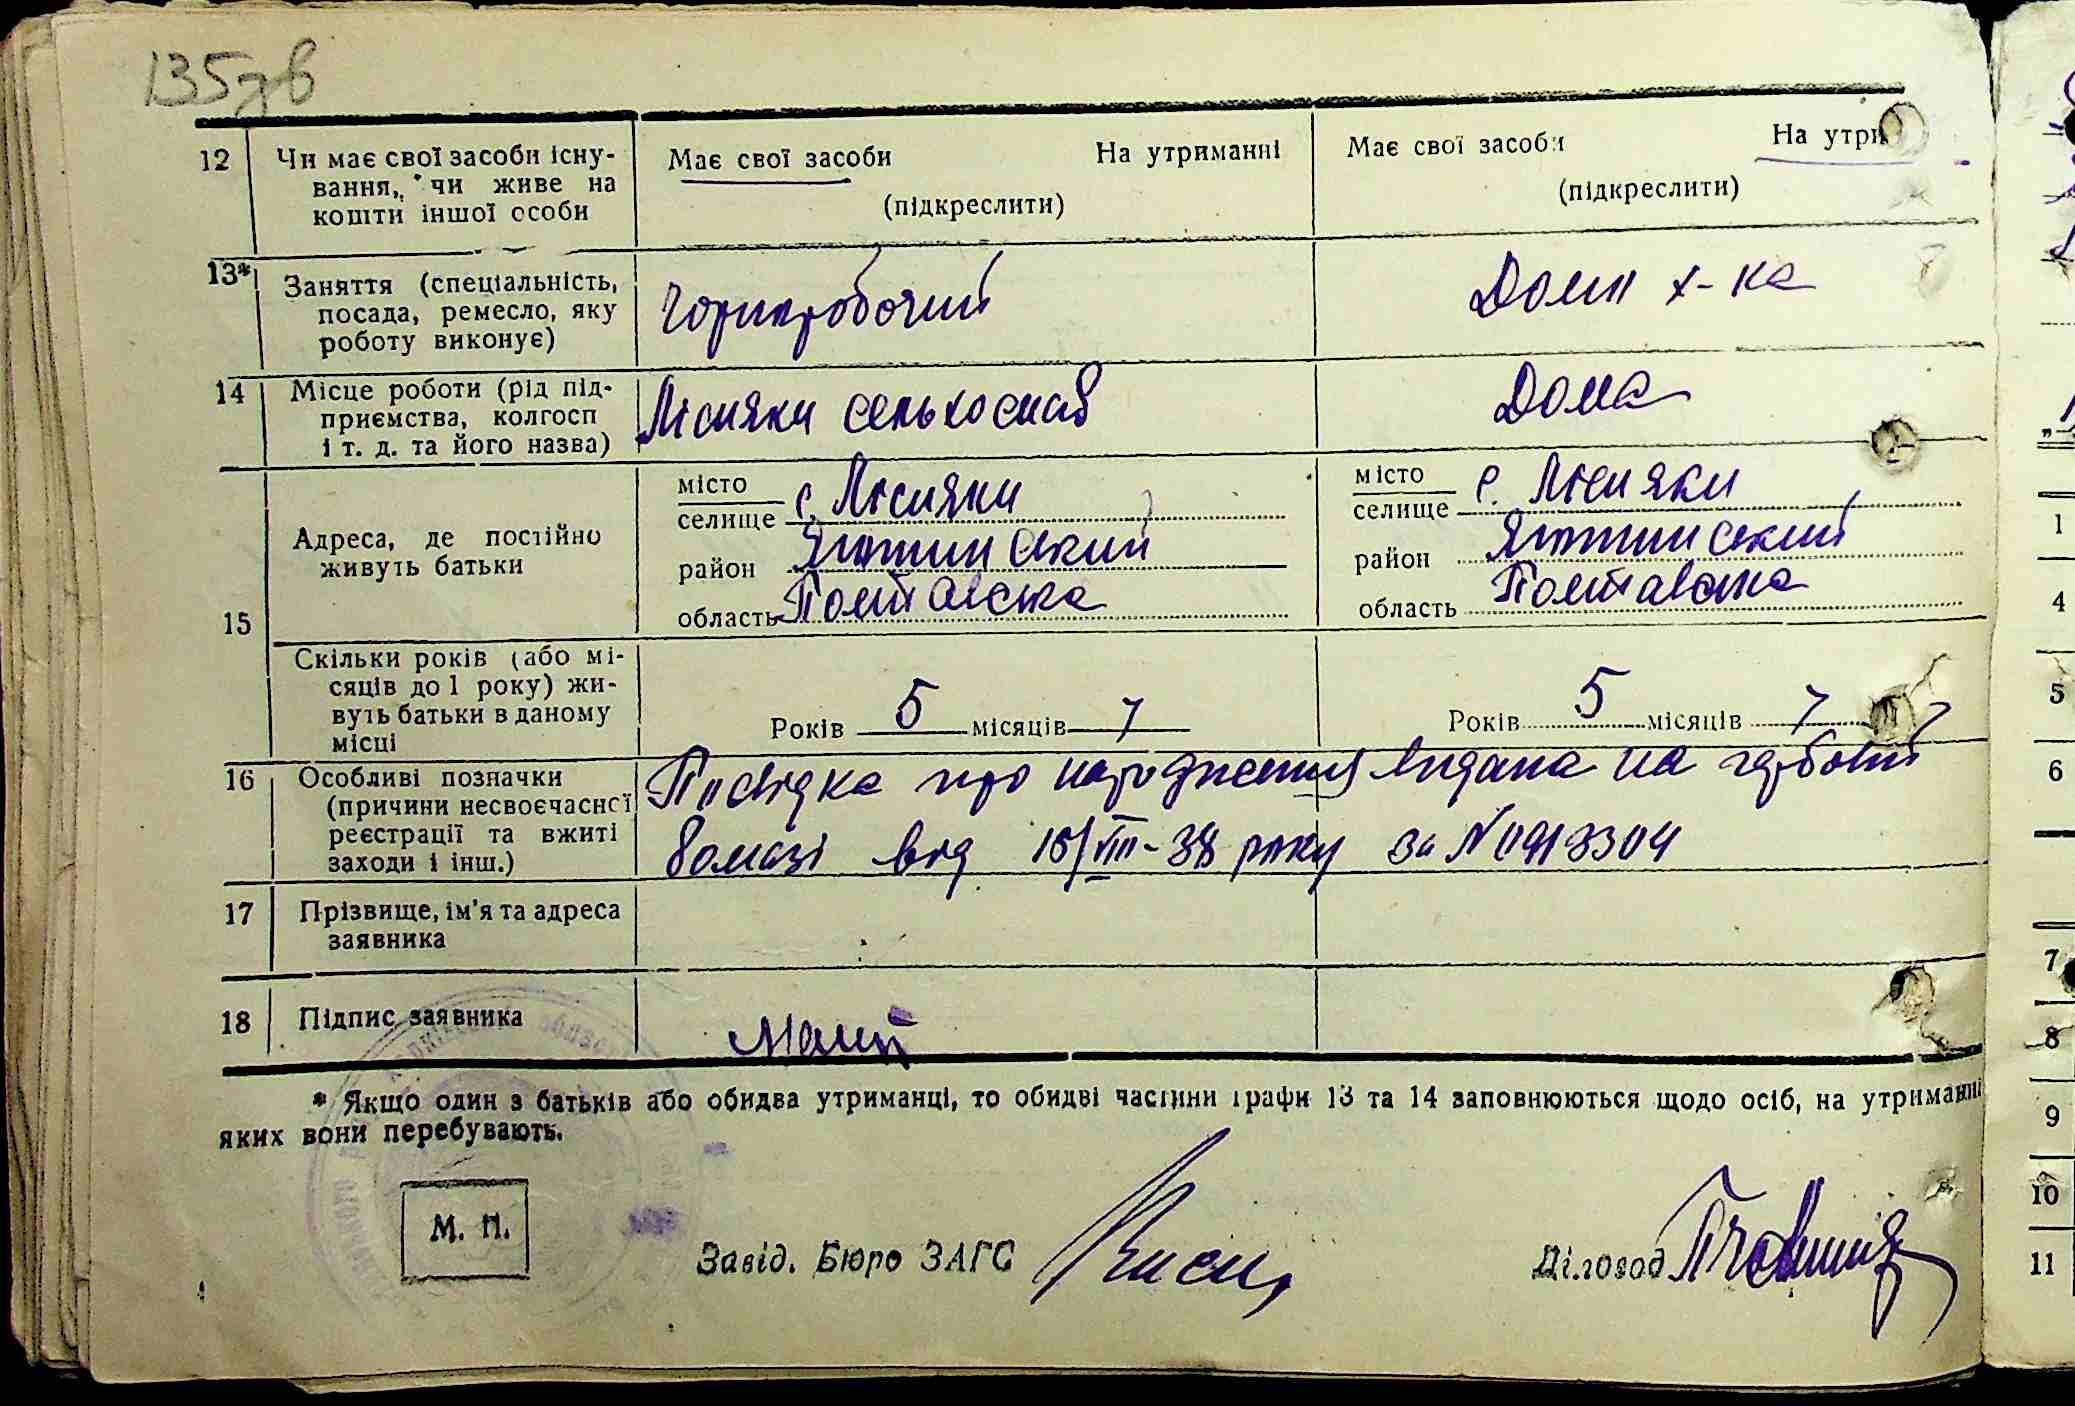 135зв
12 Чи має свої засоби існу-
вання, чи живе на
кошти іншої особи
Має свої засоби На утриманні
(підкреслити)
Має свої засоби На утри
(підкреслити)
13* Заняття (спеціальність,
посада, ремесло, яку
роботу виконує)
Чорноробочий
Домн х-ка
14 Місце роботи (рід під-
приємства, колгосп
і т. д. та його назва)
Лісняки
Дома
15 Адреса, де постійно
живуть батьки
місто
селище с. Лісняки
район Яготинський
область Полтавська
місто
селище с. Лісняки
район Яготинський
область Полтавська
Скільки років (або мі-
сяців до 1 року) жи-
вуть батьки в даному
місці
Років 5 місяців 7
Років 5 місяців 7
16 Особливі позначки
(причини несвоєчасної
реєстрації та вжиті
заходи і інш.)
Посвідка про народження видана на гербовій
бомазі від 15/VIII-38 року за №
17 Прізвище, ім'я та адреса
заявника
18 Підпис заявника
Малий
* Якщо один з батьків або обидва утриманці, то обидві частини графи 13 та 14 заповнюються щодо осіб, на утриманні
яких вони перебувають.
М. П.
Завід. Бюро ЗАГС
Діловод
1
4
5
6
7
8
9
10
11